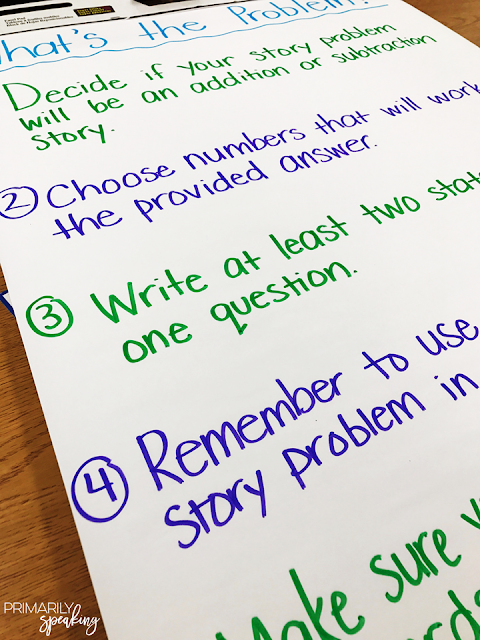 What's the Problem?
Decide if your story problem
will be an addition or subtraction
story.
2 Choose numbers that will work
the provided answer.
3 Write at least two stat
one question.
4 Remember to use
story problem in
Make sure y
PRIMARILY
speaking